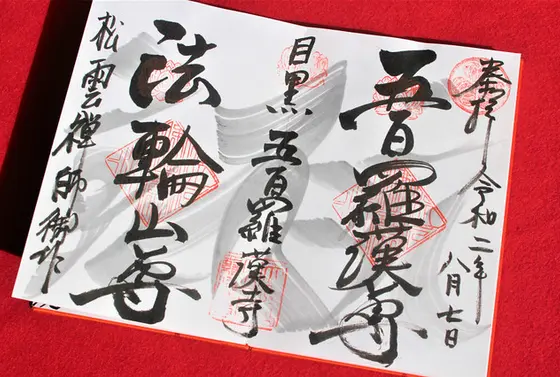 奉拝 令和二年
八月七日
五百羅漢尊
目黒 五百羅漢寺
法輪山尊
松雲禅師御作